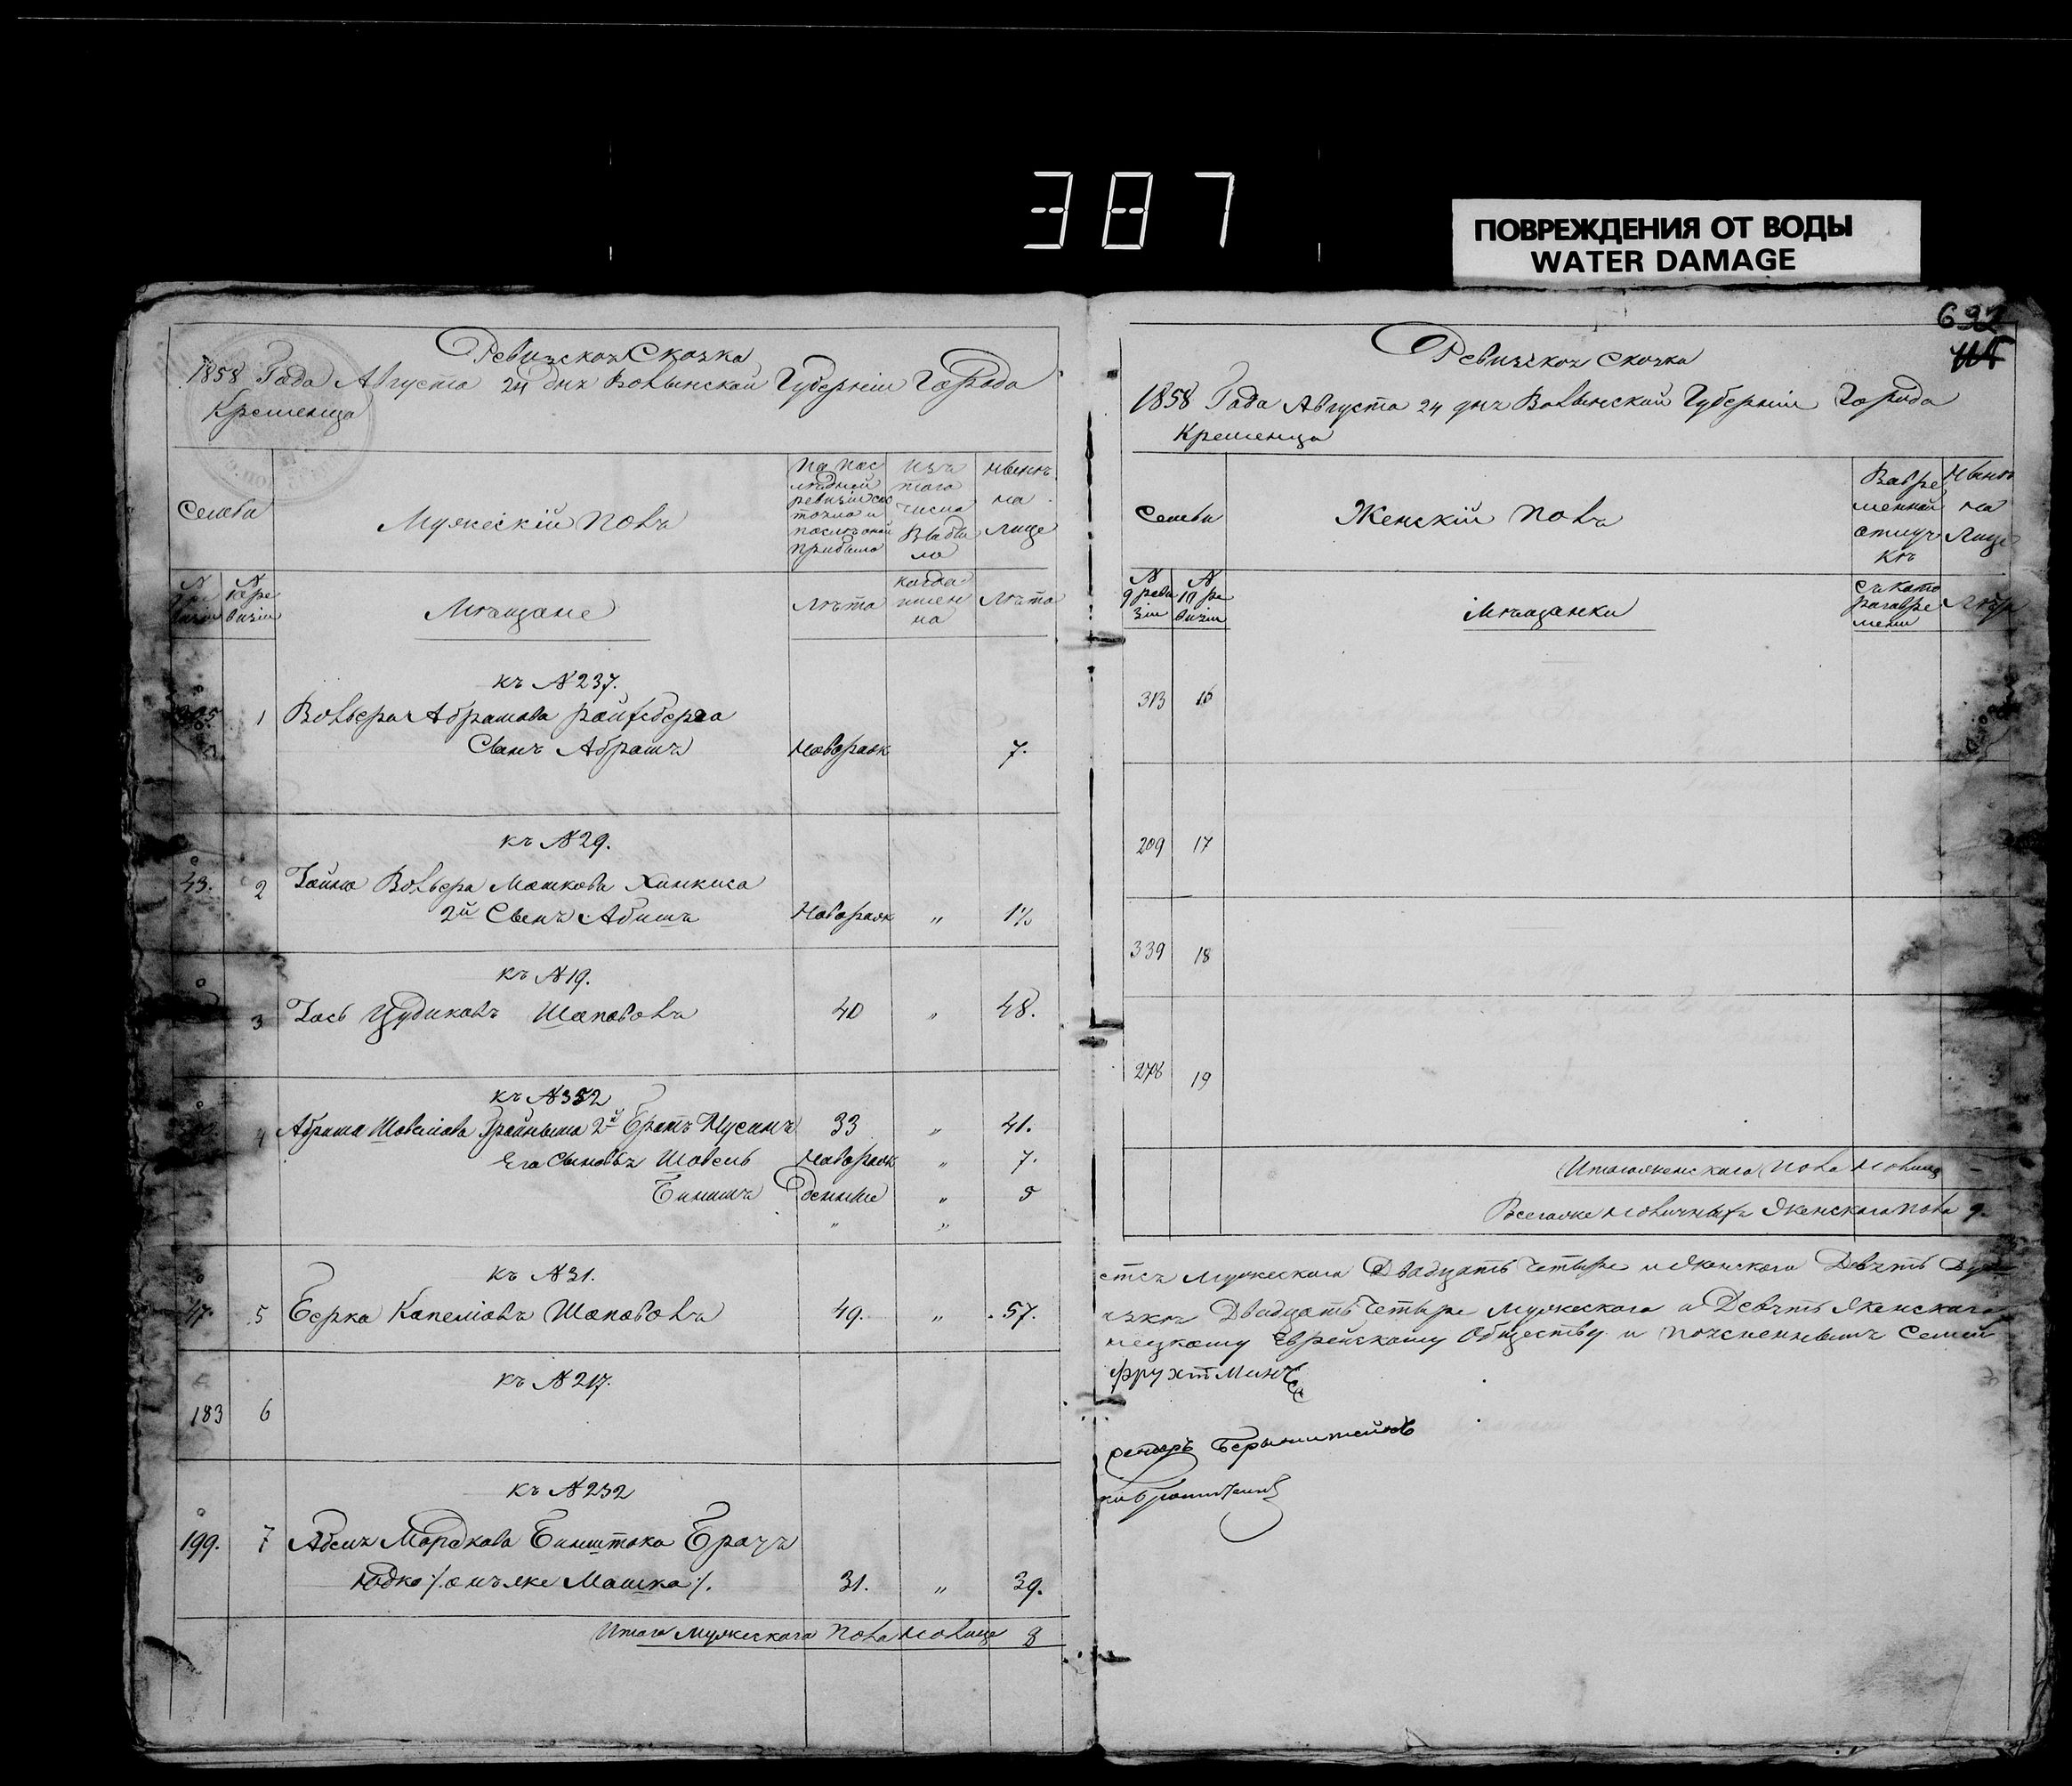 387
ПОВРЕЖДЕНИЯ ОТ ВОДЫ
WATER DAMAGE
Ревизская Сказка
1858 Года Августа 24 дня Волынской Губерніи Города
Кременца
Семьи
Мужескій полъ
По пос
ледней
ревизіи сос
тояло и
после оной
прибыло
изъ
того
числа
выбы
ло
ныне
на
лице
N
N
10 ре
визіи
Мещане
Лета
когда
имен
но
Лета
къ N 237.
1 Вольфа Абрамова Ройхберга
Сынъ Абрамъ Новорож 7.
къ N 29.
43. 2 Хаима Вольфа Машкова Хинкиса
2й Сынъ Абишъ Новорож " 1½
къ N 19.
3 Іось Цудиковъ Шаповолъ 40 " 48.
къ N 352
4 Абрама Шовелова 2й Братъ Нусинъ 33 " 41.
Его Сыновья Шовель Новорож " 7.
Бинишъ тоже " 5
" "
къ N 31.
47. 5 Берко Капеліовъ Шаповолъ 49. " 57.
къ N 217.
183 6
къ N 232
199. 7 Абель Мордкова Бинштока Братъ
Юдко /: онъ же Мошко :/. 31. " 39.
Итого мужескаго пола на лице 8
632
Ревизская Сказка
1858 Года Августа 24 дня Волынской Губерніи Города
Кременца
Семьи
Женскій полъ
Вовре
менной
отлуч
ке
Ныне
на
лице
N
9 реви
зіи
N
10 ре
визіи
Мещанки
Съ кото
раго вре
мени
Лета
313 16
209 17
339 18
278 19
Итого женскаго пола на лице -
Всего же наличныхъ женскаго пола 9.
ется мужескаго Двадцать четыре и женскаго Девять Душ
Двадцать четыре мужескаго и Девять женскаго
нецкому Еврейскому Обществу и поясненнымъ Семей
фрухтманъ
Бернштейнъ